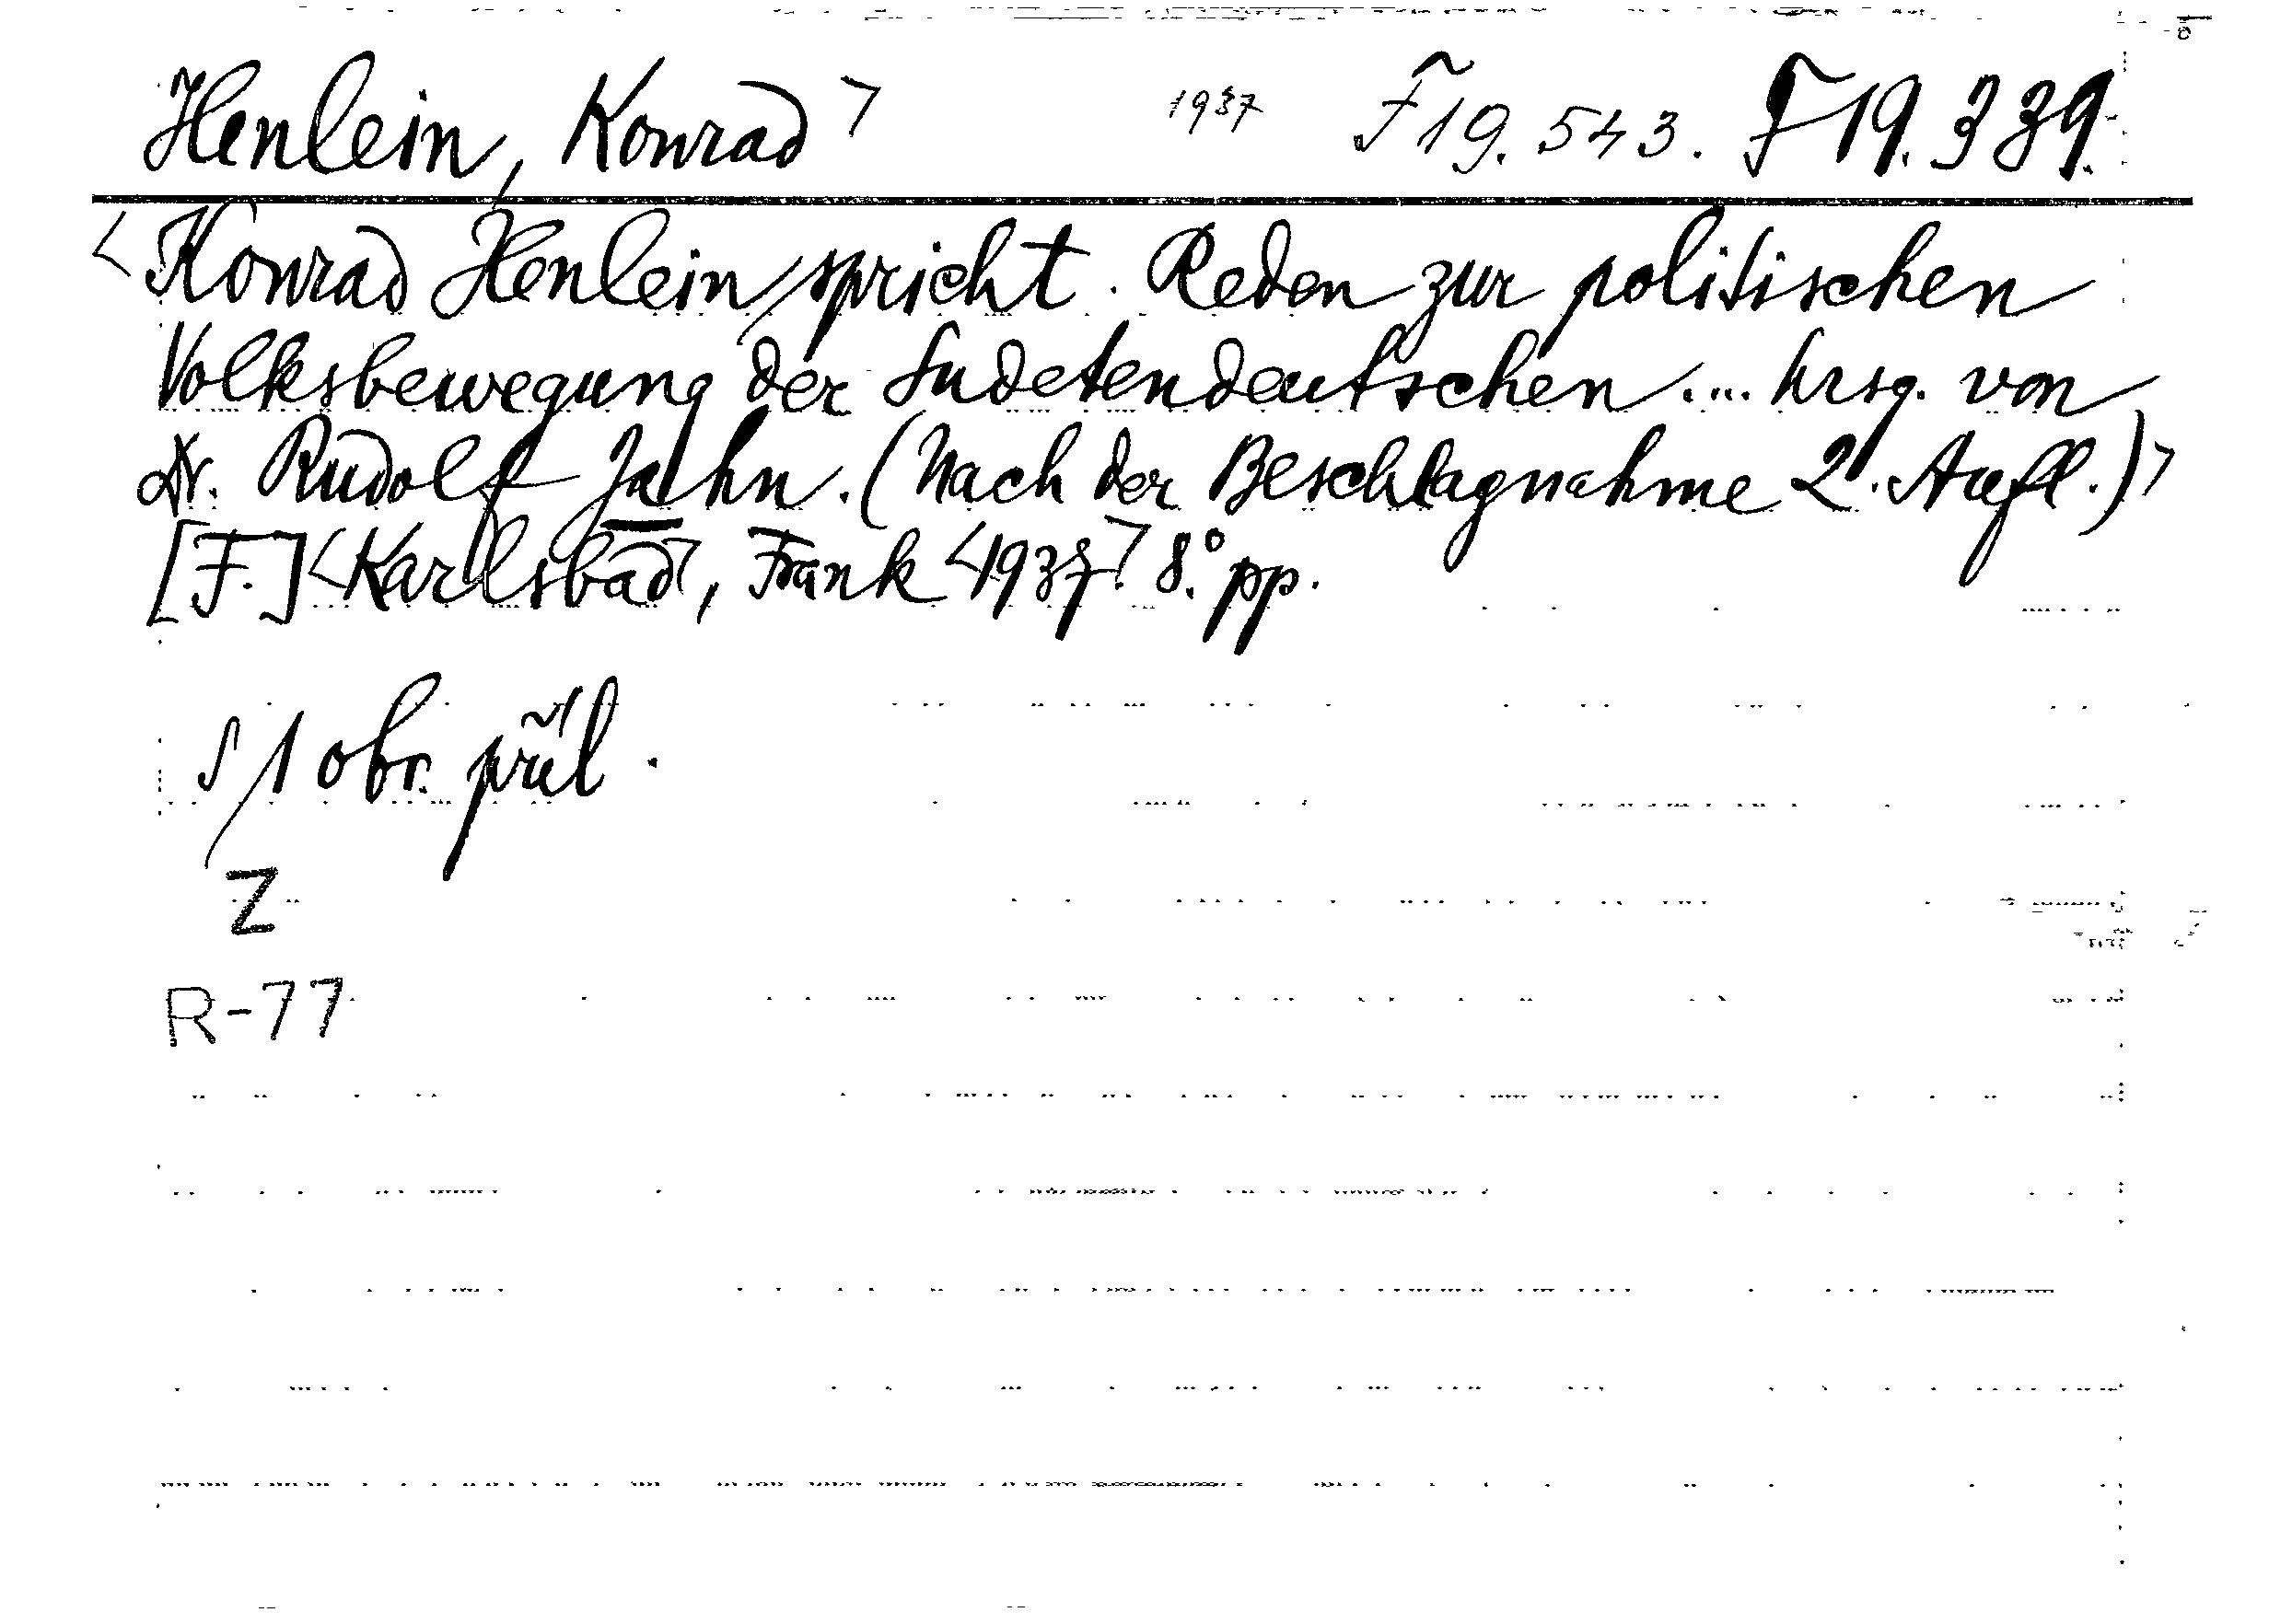 Henlein, Konrad> 1937 F 19.543. F 19.339.
<Konrad Henlein spricht. Reden zur politischen
Volksbewegung der Sudetendeutschen.... hrsg. von
Dr. Rudolf Jahn. (Nach der Beschlagnahme 2. Aufl.)>
[F.] <Karlsbad>, Frank <1937> 8.° pp.
S 1 obr. příl.
Z
R-77